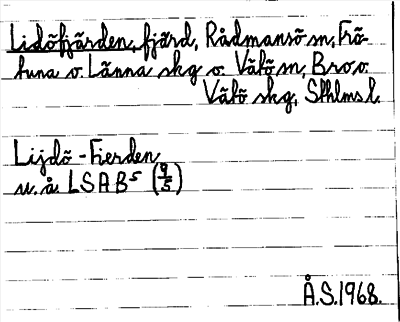 Lidöfjärden, fjärd, Rådmansö sn, Frö-
tuna o. Länna skg o. Vätö sn, Bro o.
Vätö skg, Sthlms l.
Lijdö-Fierden
u. å. LSA B⁵ (9/5)
Å.S. 1968.